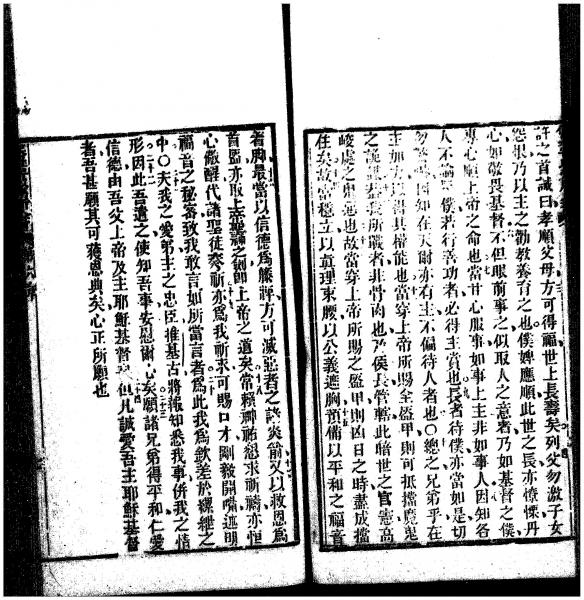 許之首誡曰孝順父母方可得福世上長壽矣列父勿激子女
怨恨乃以主之勸教養育之也僕婢應順此世之長亦憭慄丹
心如敬畏基督不但眼前事之似取人之意者乃如基督之僕
專心願上帝之命也當甘心服事如事上主非如事人因知各
人不論乎僕若行善功者必得主賞也長者待僕亦當如是切
勿因知在天爾亦有主不偏待人者也〇總之兄弟乎在
主加力著其權能也當穿上帝所賜全盔甲則可抵擋魔鬼
之所戰者非骨肉也乃侯長管轄此暗世之官憲高
峻處之也故當穿上帝所賜之盔甲則凶日之時盡成擋
住矣故當穩立以真理束腰以公義遮胸預備以平和之福音
者脚最當以信德為籐牌方可滅惡者之諸炎箭又以救恩為
首盔亦取上聖神之劍即上帝之道矣常賴神祐懇求祈禱亦恒
心儆醒代諸聖徒祈亦為我祈求可賜口才剛毅開嘴進明
福音之秘奧致我敢言如所當言者為此我為欽差於縲絏之
中〇夫我之愛弟主之忠臣推基古將報知悉我事併我之情
形因此吾遣之使知吾事安慰爾心矣願諸兄弟得平和仁愛
信德由吾父上帝及主耶穌基督 但凡誠愛吾主耶穌基督
者吾甚願其可獲恩典矣心正所願也